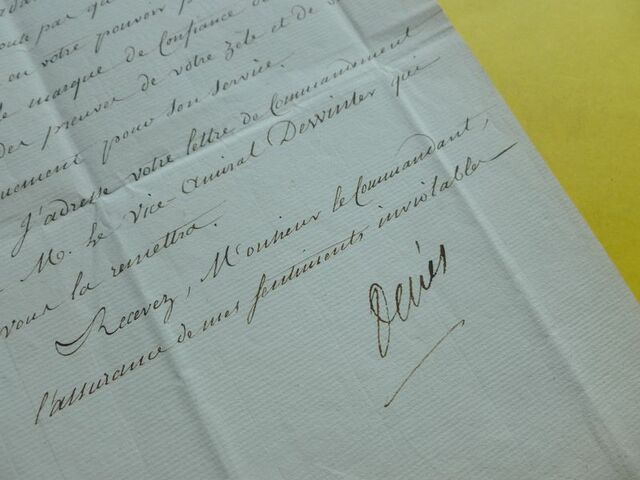 oute pas qu
en votre pouvoir p
marque de Confiance
des preuves de votre zèle et de
uement pour son service.
J'adresse votre lettre de Commandement
à M. le Vice Amiral Dewinter qui
vous la remettra.
Recevez, Monsieur le Commandant,
l'assurance de mes sentiments inviolables
Decrès